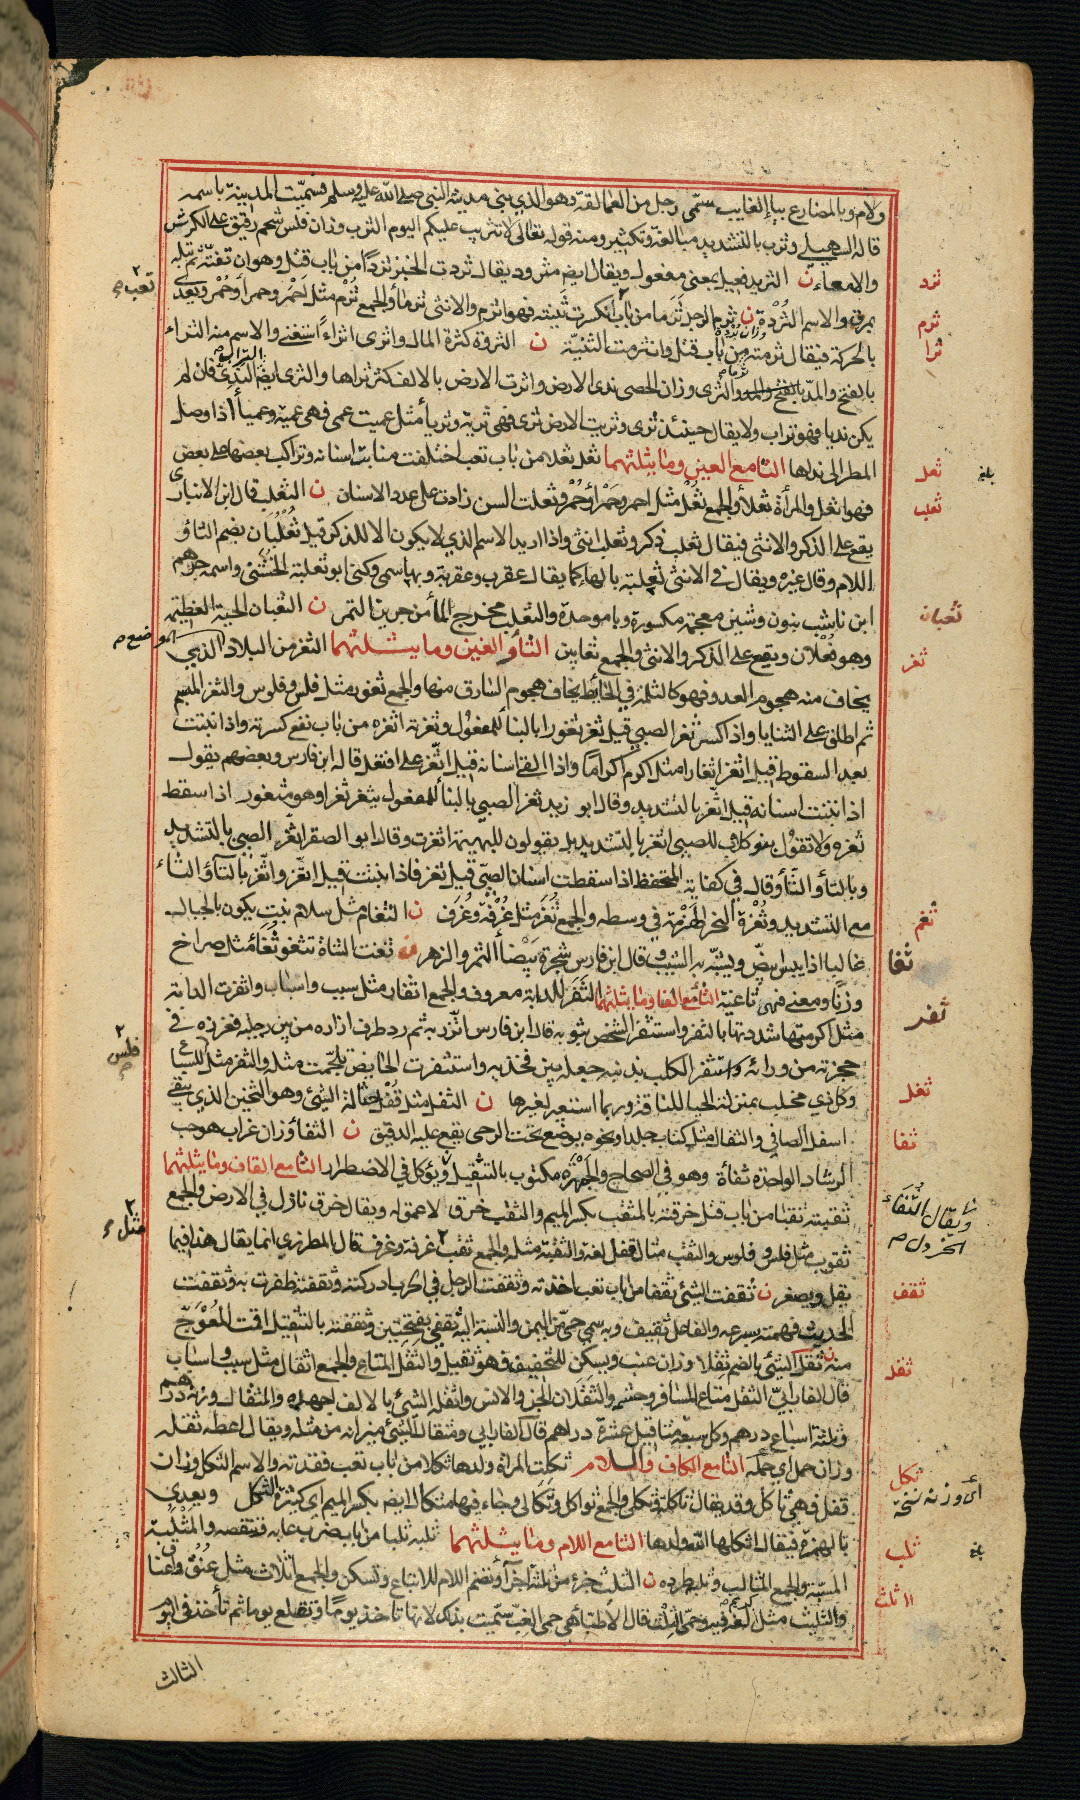 ولام وبالمضارع بياء الغايب سمّي رجل من العمالقة وهو الذي بنى مدينة النبي صلى الله عليه وسلم فسميت المدينة باسمه
قاله السهيلي وثرب بالتشديد مبالغة وتكثير ومنه قوله تعالى لا تثريب عليكم اليوم الثرب وزان فلس شحم رقيق على الكرش
والامعاء ن الثريد فعيل بمعنى مفعول ويقال ايض مثرود يقال ثردت الخبز ثردا من باب قتل وهو ان تفتّه ثم تبله
بمرق والاسم الثردة ن ثرم الرجل ثرما من باب انكسرت ثنيته فهو اثرم والانثى ثرماء والجمع ثرم مثل احمر وحمراء وحمر ويعدى
بالحركة فيقال ثرمته من باب قتل وانثرمت الثنيّة ن الثروة كثرة المال واثرى اثراء استغنى والاسم منه الثراء
بالفتح والمد والثرى وزان الحصى ندى الارض واثرت الارض بالالف كثر ثراها والثرى ايضا التراب الندي فان لم
يكن نديا فهو تراب ولا يقال حينئذ ثرى وثريت الارض ثرى فهي ثرية وثرياء مثل عميت عمى فهي عمية وعمياء اذا وصل
المطر الى نداها الثا مع العين وما يثلثهما ثعل ثعلا من باب تعب اختلفت منابت اسنانه وتراكب بعضها على بعض
فهو اثعل والمرأة ثعلاء والجمع ثعل مثل احمر وحمراء وحمر وثعلت السن زادت على عدد الاسنان ن الثعلب قال ابن الانباري
يقع على الذكر والانثى فيقال ثعلب ذكر وثعلب انثى واذا اريد الاسم الذي لا يكون الا للذكر قيل ثعلبان بضم الثاء و
اللام وقال غيره ويقال في الانثى ثعلبة بالهاء كما يقال عقرب وعقربة وبها سمي وكنى ابو ثعلبة الخشني واسمه جرهم
ابن ناشب بنون وشين معجمة مكسورة وبا موحدة والثعلب مخرج الماء من جرين التمر ن الثعبان الحية العظيمة
وهو فعلان ويقع على الذكر والانثى والجمع ثعابين الثاء والغين وما يثلثهما الثغر من البلاد الذي
يخاف منه هجوم العدو فهو كالثلمة في الحائط يخاف هجوم السارق منها والجمع ثغور مثل فلس وفلوس والثغر المبسم
ثم اطلق على الثنايا واذا كسر ثغر الصبي قيل ثغر ثغورا بالبناء للمفعول وثغرته اثغره من باب نفع كسرته واذا نبتت
بعد السقوط قيل اثغر اثغارا مثل اكرم اكراما واذا القى اسنانه قيل اثّغر على افتعل قاله ابن فارس وبعضهم يقول
اذا نبتت اسنانه قيل اثّغر بالتشديد وقال ابو زيد ثغر الصبي بالبناء للمفعول يثغر ثغرا وهو مثغور اذا سقط
ثغره ولا تقول بنو كلاب للصبي اثغر بالتشديد بل يقولون للبهيمة اثغرت وقال ابو الصقر اثّغر الصبي بالتشديد
وبالتاء والثاء وقال في كفاية المتحفظ اذا سقطت اسنان الصبي قيل ثغر فاذا نبتت قيل اتّغر واثّغر بالتاء والثاء
مع التشديد وثغرة النحر الهزمة في وسطه والجمع ثغر مثل غرفة وغرف ن الثغام مثل سلام نبت يكون بالجبال
غالبا اذا يبس ابيضّ ويشبّه به الشيب وقال ابن فارس شجرة بيضاء الثمر والزهر ن ثغت الشاة تثغو ثغاء مثل صراخ
وزنا ومعنى فهي ثاغية الثا مع الفا وما يثلثهما الثفر للدابة معروف والجمع اثفار مثل سبب واسباب واثفرت الدابة
مثل اكرمتها شددتها بالثفر واستثفر الشخص بثوبه قال ابن فارس اتزر به ثم رد طرف ازاره من بين رجليه فغرزه في
حجزته من ورائه واستثفر الكلب بذنبه جعله بين فخذيه واستثفرت الحايض تلجّمت مثله والثفر مثل للسباع
وكل ذي مخلب بمنزلة الحيا للناقة وربما استعير لغيرها ن الثفل مثل قفل حثالة الشيئ وهو الثخين الذي يبقى
اسفل الصافي والثفال مثل كتاب جلد او نحوه يوضع تحت الرحى يقع عليه الدقيق ن الثفاء وزان غراب هو حب
الرشاد الواحدة ثفاءة وهو في الصحاح والجمهرة مكتوب بالتثقيل ويؤكل في الاضطرار الثا مع القاف وما يثلثهما
ثقبته ثقبا من باب قتل خرقته بالمثقب بكسر الميم والثقب خرق لا عمق له ويقال خرق نازل في الارض والجمع
ثقوب مثل فلس وفلوس والثقب مثال قفل لغة والثقبة مثله والجمع ثقب غرفة وغرف قال المطرزي انما يقال هذا فيما
يقل ويصغر ن ثقفت الشيئ ثقفا من باب تعب اخذته وثقفت الرجل في الحرب ادركته وثقفته ظفرت به وثقفت
الحديث فهمته بسرعة والفاعل ثقيف وبه سمي حيّ من اليمن والنسبة اليه ثقفي بفتحتين وثقفته بالتثقيل اقمت المعوجّ
منه ن ثقل الشيئ بالضم ثقلا وزان عنب ويسكن للتخفيف فهو ثقيل والثقل المتاع والجمع اثقال مثل سبب واسباب
قال الفارابيّ الثقل متاع المسافر وحشمه والثقلان الجن والانس واثقله الشيئ بالالف اجهده والمثقال وزنه درهم
وثلثة اسباع درهم وكل سبعة مثاقيل عشرة دراهم قال الفارابي ومثقال الشيئ ميزانه من مثله ويقال اعطه ثقله
وزان حمل اي حمله الثا مع الكاف واللام ثكلت المرأة ولدها ثكلا من باب تعب فقدته والاسم الثكل وزان
قفل فهي ثاكل وقد يقال ثاكلة وثكلى والجمع ثواكل وثكالى وجاء فيها مثكال ايض بكسر الميم اي كثيرة الثكل ويعدى
بالهمزة فيقال اثكلها الله ولدها الثا مع اللام وما يثلثهما ثلبه ثلبا من باب ضرب عابه وتنقصه والمثلبة
المسبّة والجمع المثالب وثلبه طرده ن الثلث جزء من ثلثة اجزاء وتضم اللام للاتباع وتسكن والجمع اثلاث مثل عنق واعناق
والثليث مثل كريم لغة فيه وحمى الثلث قال الاطباء هي حمى الغبّ سمّيت بذلك لانها تاخذ يوما وتقلع يوما ثم تأخذ في اليوم
الثالث
ثرد
ثرم
ثرا
ثعل
ثعلب
ثعبان
ثغر
ثغم
ثغا
ثفر
ثفل
ثفا
ويقال الثفاء
الخردل
ثقف
ثقل
ثكل
أي وزنه نسخة
ثلب
ثلث
بلغ
تعب
المواضع
فلس
مثل